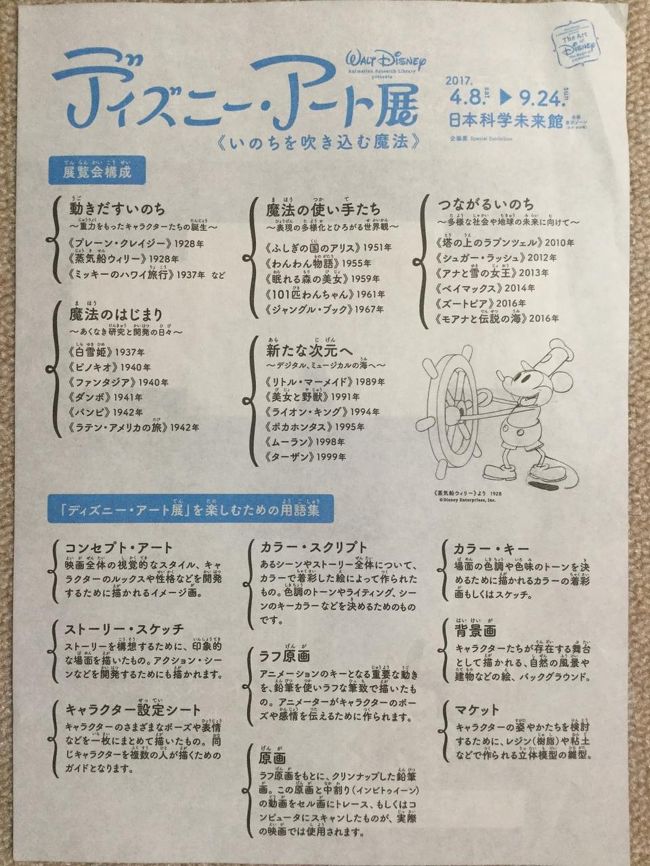 ディズニー・アート展
WALT DISNEY
Animation Research Library
presents
《いのちを吹き込む魔法》
2017.
4.8.sat ▶ 9.24.sun
日本科学未来館
企画展 Special Exhibition
The Art of
Disney
展覧会構成
動きだすいのち
～重力をもったキャラクターたちの誕生～
《プレーン・クレイジー》1928年
《蒸気船ウィリー》1928年
《ミッキーのハワイ旅行》1937年 など
魔法のはじまり
～あくなき研究と開発の日々～
《白雪姫》1937年
《ピノキオ》1940年
《ファンタジア》1940年
《ダンボ》1941年
《バンビ》1942年
《ラテン・アメリカの旅》1942年
魔法の使い手たち
～表現の多様化とひろがる世界観～
《ふしぎの国のアリス》1951年
《わんわん物語》1955年
《眠れる森の美女》1959年
《101匹わんちゃん》1961年
《ジャングル・ブック》1967年
新たな次元へ
～デジタル、ミュージカルの海へ～
《リトル・マーメイド》1989年
《美女と野獣》1991年
《ライオン・キング》1994年
《ポカホンタス》1995年
《ムーラン》1998年
《ターザン》1999年
つながるいのち
～多様な社会や地球の未来に向けて～
《塔の上のラプンツェル》2010年
《シュガー・ラッシュ》2012年
《アナと雪の女王》2013年
《ベイマックス》2014年
《ズートピア》2016年
《モアナと伝説の海》2016年
《蒸気船ウィリー》より 1928
©Disney Enterprises, Inc.
「ディズニー・アート展」を楽しむための用語集
コンセプト・アート
映画全体の視覚的なスタイル、キャ
ラクターのルックスや性格などを開発
するために描かれるイメージ画。
ストーリー・スケッチ
ストーリーを構想するために、印象的
な場面を描いたもの。アクション・シー
ンなどを開発するためにも描かれます。
キャラクター設定シート
キャラクターのさまざまなポーズや表情
などを一枚にまとめて描いたもの。同
じキャラクターを複数の人が描くための
ガイドとなります。
カラー・スクリプト
あるシーンやストーリー全体について、
カラーで着彩した絵によって作られた
もの。色調のトーンやライティング、シー
ンのキーカラーなどを決めるためのもの
です。
ラフ原画
アニメーションのキーとなる重要な動き
を、鉛筆を使いラフな筆致で描いたも
の。アニメーターがキャラクターのポー
ズや感情を伝えるために作られます。
原画
ラフ原画をもとに、クリンナップした鉛筆
画。この原画と中割り（インビトゥイーン）
の動画をセル画にトレース、もしくはコ
ンピュータにスキャンしたものが、実際
の映画では使用されます。
カラー・キー
場面の色調や色味のトーンを決
めるために描かれるカラーの着彩
画もしくはスケッチ。
背景画
キャラクターたちが存在する舞台
として描かれる、自然の風景や
建物などの絵、バックグラウンド。
マケット
キャラクターの姿やかたちを検討
するために、レジン（樹脂）や粘土
などで作られる立体模型の雛型。